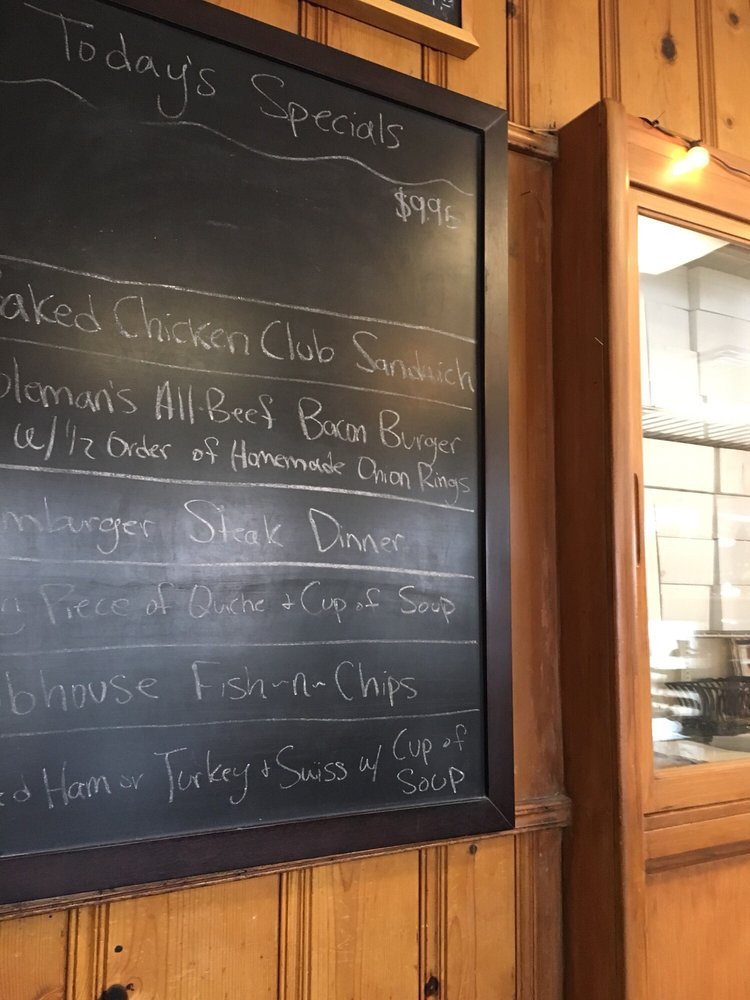 Today's Specials
$9.95
aked Chicken Club Sandwich
oleman's All-Beef Bacon Burger
w/ 1/2 Order of Homemade Onion Rings
mburger Steak Dinner
g Piece of Quiche & Cup of Soup
bhouse Fish-n-Chips
ed Ham or Turkey & Swiss w/ Cup of
Soup